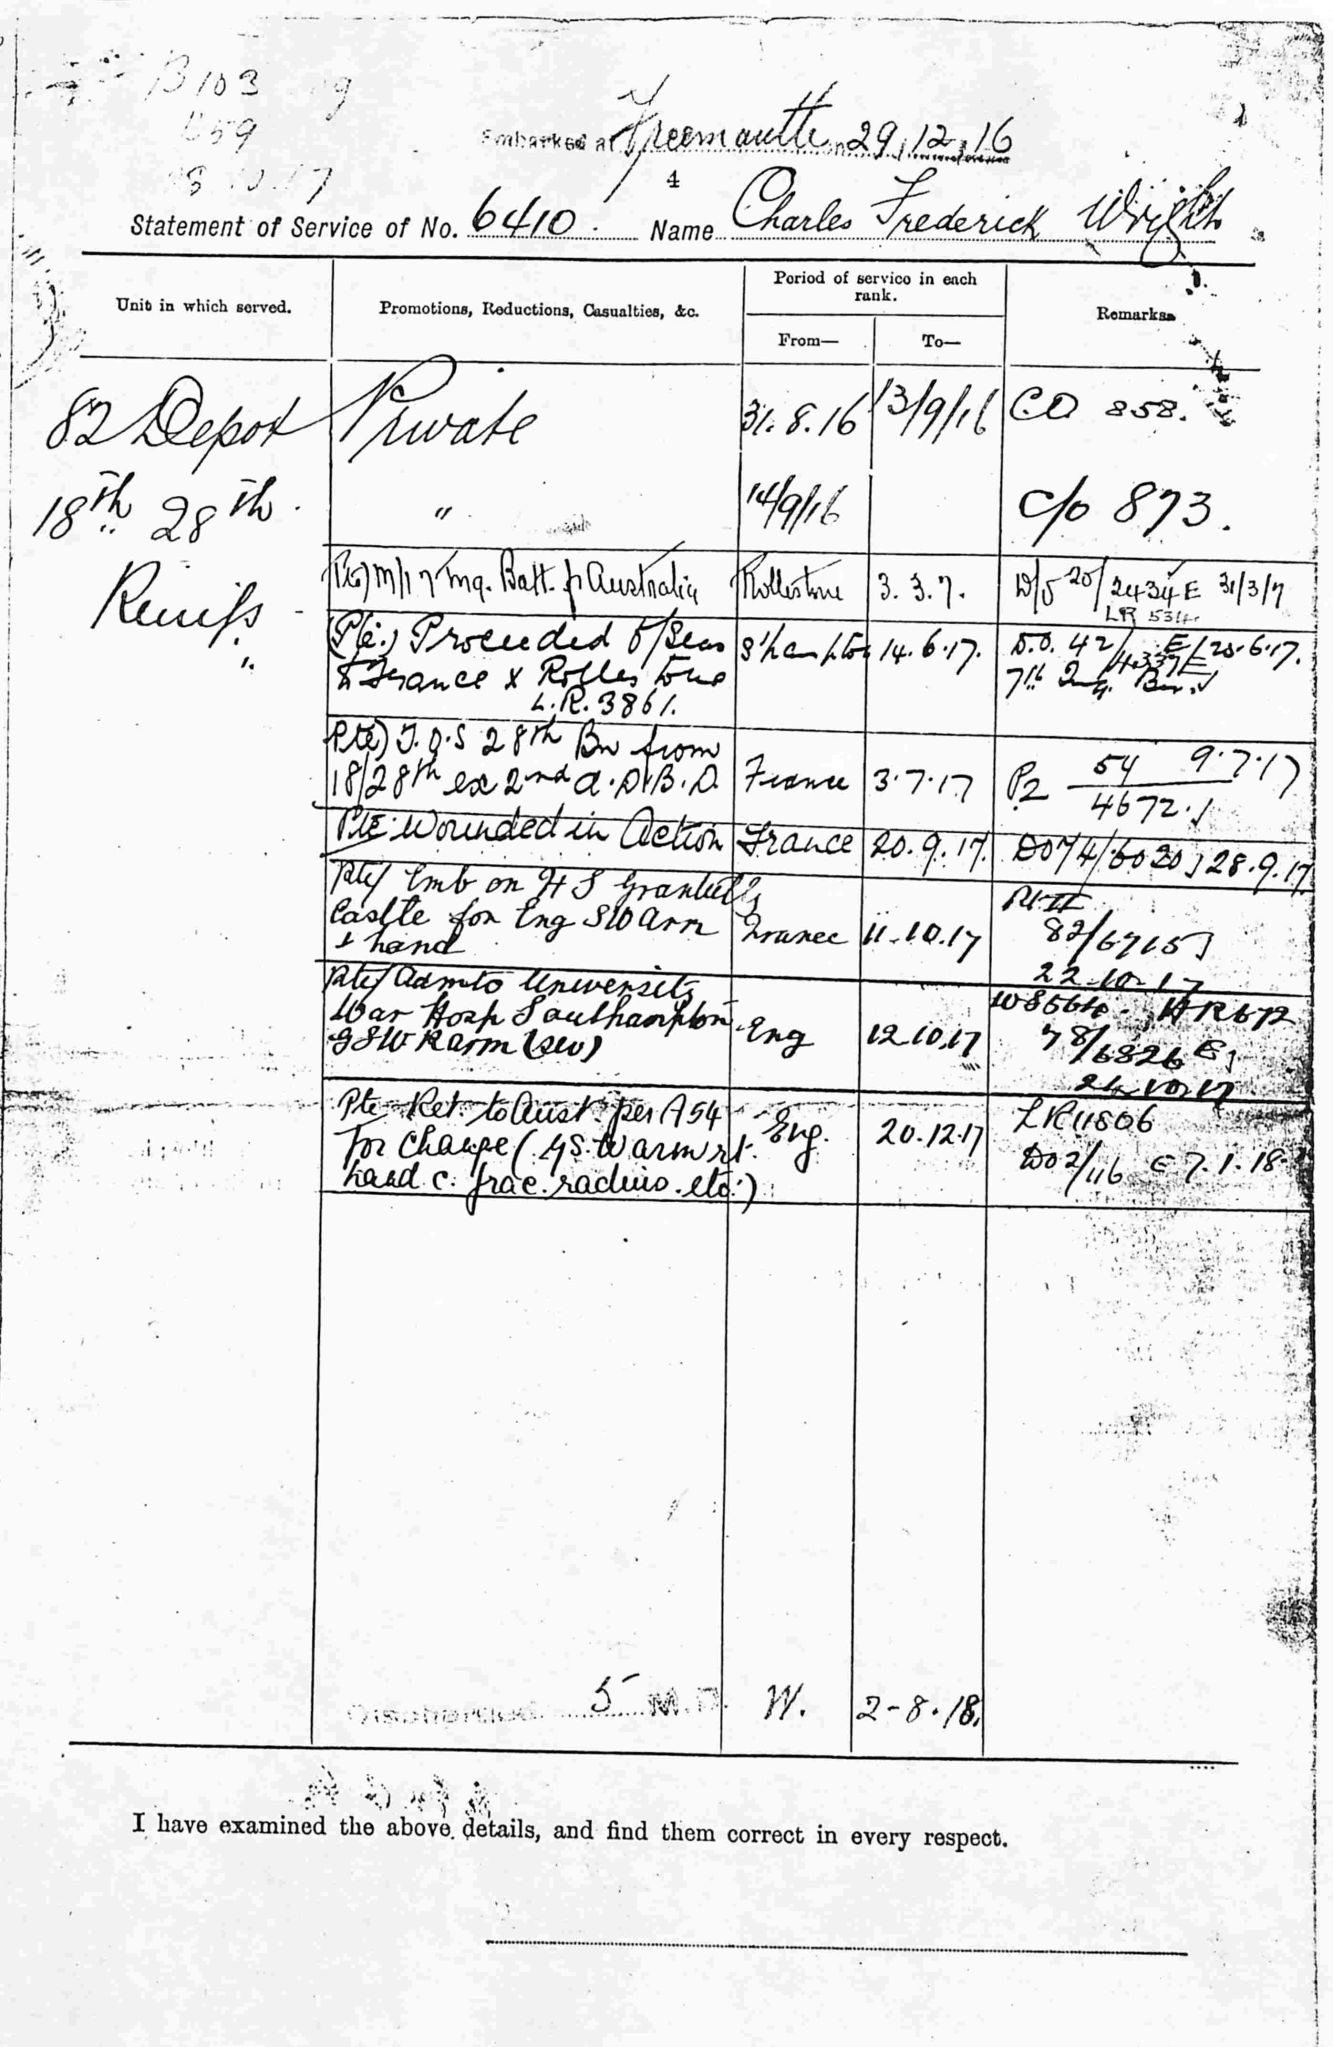 B103
859
Embarked at Freemantle on 29.12.16
4
Statement of Service of No. 6410. Name Charles Frederick Wright
Unit in which served.
Promotions, Reductions, Casualties, &c.
Period of service in each rank.
From—
To—
Remarks.
82 Depot Private 31.8.16 13/9/16 CO 858.
18th 28th " 14/9/16 c/o 873.
Reinfs
Pte) M/I 7 Tng. Batt. f Australia Rollestone 3.3.7. D/O 20/2434 E 31/3/7
LR 534
(Pte.) Proceeded O/Seas S'hampton 14.6.17. D.O. 42/4337E E/20.6.17.
to France x Rollestone 7th Tng. Bn.
L.R. 3861.
Pte) T.O.S 28th Bn from
18/28th ex 2nd A.D.B.D. France 3.7.17 P2 54/4672 9.7.17
Pte Wounded in Action France 20.9.17. DO 74/6020 28.9.17
Pte) Emb on H S Grantully
Castle for Eng SW Arm France 11.10.17 Pt II 82/6715
& hand 22.10.17
Pte) Adm to University W8564 HR672
War Hosp Southampton Eng 12.10.17 78/6826 E
GSW R arm (sev) 24.10.17
Pte Ret. to Aust. per A54 Eng. 20.12.17 LR 11806
for change (G.S.W arm rt. DO 2/116 E 7.1.18.
hand c. frac. radius. etc.)
Discharged 5 M.D. W. 2-8.18.
I have examined the above details, and find them correct in every respect.